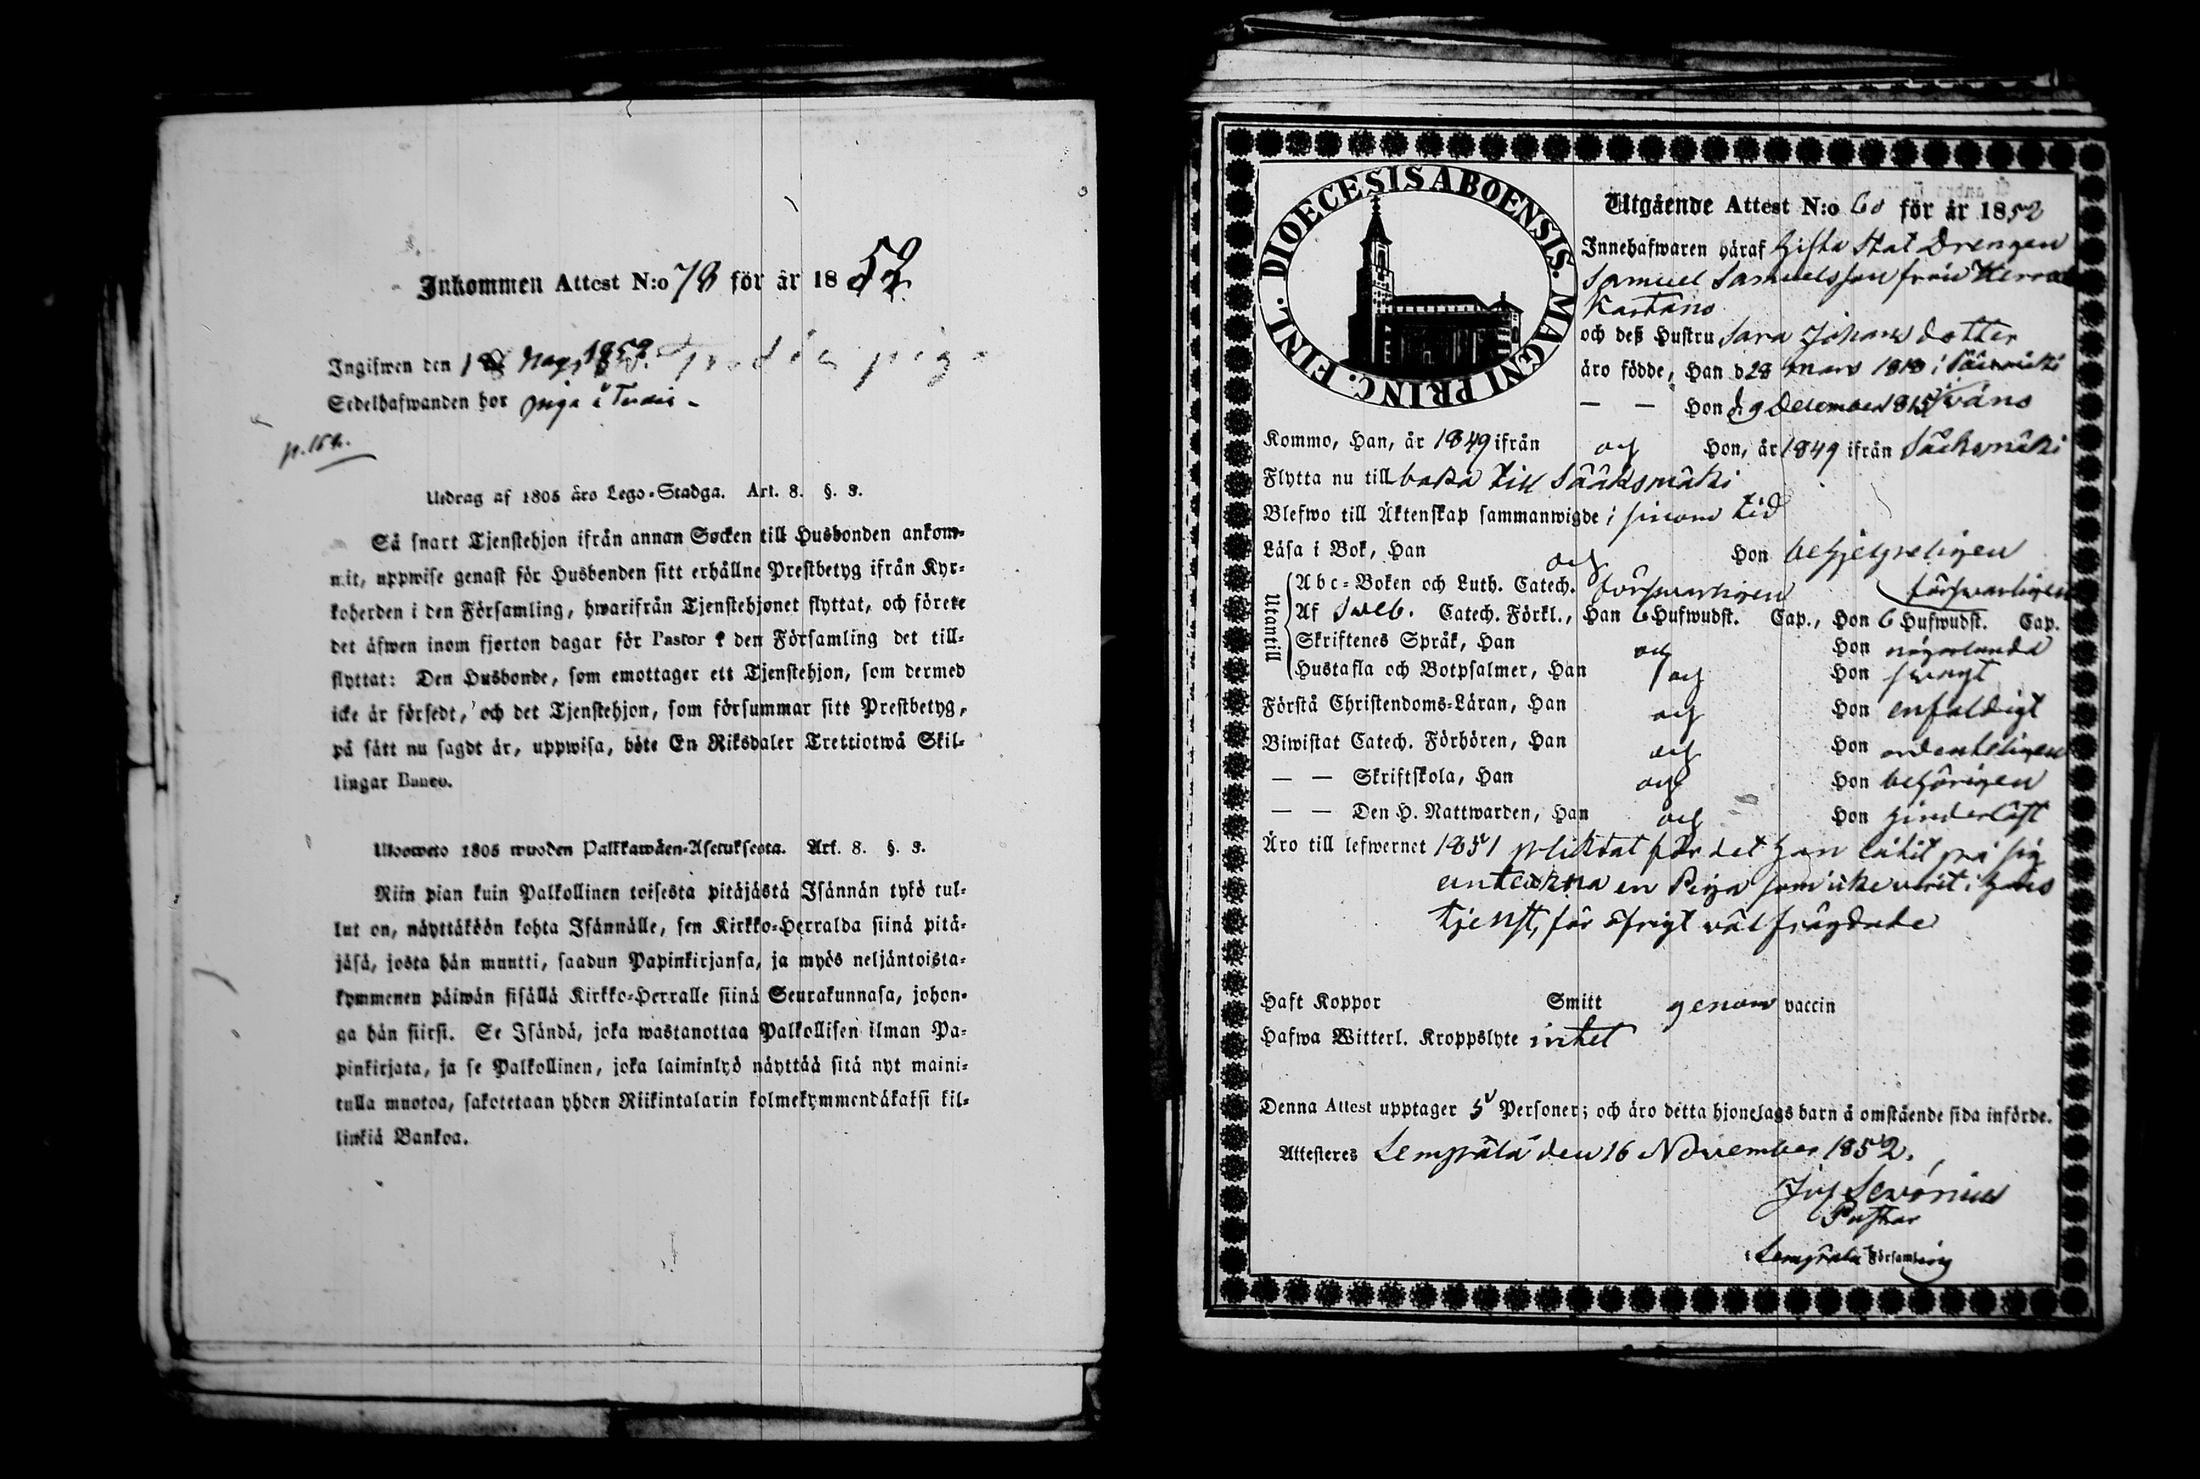 Inkommen Attest N:o 78 för år 1852.
Ingifwen den 18 1852.
Sedelhafwanden bor piga i
p. 154.
Utdrag af 1805 års Lego-Stadga. Art. 8. §. 3.
Så snart Tjenstehjon ifrån annan Socken till Husbonden ankom-
mit, uppwise genast för Husbonden sitt erhållne Prestbetyg ifrån Kyr-
koherden i den Församling, hwarifrån Tjenstehjonet flyttat, och förete
det äfwen inom fjorton dagar för Pastor i den Församling det till-
flyttat: Den Husbonde, som emottager ett Tjenstehjon, som dermed
icke är försedt, och det Tjenstehjon, som försummar sitt Prestbetyg,
på sätt nu sagdt är, uppwisa, böte En Riksdaler Trettiotwå Skil-
lingar Banco.
Ulosweto 1805 wuoden Palkkawäen-Asetuksesta. Art. 8. §. 3.
Niin pian kuin Palkollinen toisesta pitäjästä Isännän tykö tul-
lut on, näyttäköön kohta Isännälle, sen Kirkko-Herralda siinä pitä-
jäsä, josta hän muutti, saadun Papinkirjansa, ja myös neljäntoista-
kymmenen päiwän sisällä Kirkko-Herralle siinä Seurakunnasa, johon-
ga hän siirsi. Se Isändä, joka wastanottaa Palkollisen ilman Pa-
pinkirjata, ja se Palkollinen, joka laiminlyö näyttää sitä nyt maini-
tulla muotoa, sakotetaan yhden Riikintalarin kolmekymmendäkaksi kil-
linkiä Bankoa.
DIOECESIS ABOENSIS. MAGNI PRINC. FINL.
Utgående Attest N:o 60 för år 1852
Innehafwaren häraf Gifta Stat Drengen
Samuel Samuelsson från Herra
Kartano
och deß Hustru Sara Johans dotter
äro födde, Han d 28 mars 1818 i Sääxmäki
— — Hon d. 9 December 1815 i
Kommo, Han, år 1849 ifrån och Hon, år 1849 ifrån Sääksmäki
Flytta nu till baka till Sääksmäki
Blefwo till Äktenskap sammanwigde i sinom tid
Läsa i Bok, Han och Hon behjelpeligen
Utantill
Abc-Boken och Luth. Catech. försvarligen försvarligen
Af Sweb. Catech. Förkl., Han 6 Hufwudst. Cap., Hon 6 Hufwudst. Cap.
Skriftenes Språk, Han och Hon någorlunda
Hustafla och Botpsalmer, Han och Hon swagt
Förstå Christendoms-Läran, Han och Hon enfaldigt
Biwistat Catech. Förhören, Han och Hon ordenteligen
— — Skriftskola, Han och Hon behörigen
— — Den H. Nattwarden, Han och Hon hinderlöst
Äro till lefwernet 1851 pliktat för det han läkit på sig
anteckna en Piga som icke varit i hans
tjenst, för öfrigt välfrägdade
Haft Koppor Smitt genom vaccin
Hafwa Witterl. Kroppslyte intet
Denna Attest upptager 5 Personer; och äro detta hjonelags barn å omstående sida införde.
Attesteres Lempäälä den 16 November 1852.
Pastor
i Lempäälä Församling